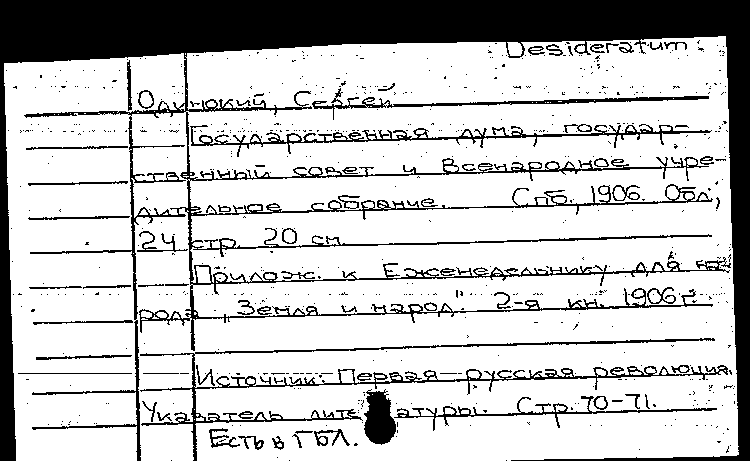 Desideratum:
Одинокий, Сергей
Государственная дума, государ-
ственный совет и Всенародное учре-
дительное собрание. Спб., 1906. Обл.,
24 стр. 20 см.
Прилож. к Еженедельнику для на-
рода „Земля и народ". 2-я кн. 1906 г.
Источник: Первая русская революция.
Указатель литературы. Стр. 70-71.
Есть в ГБЛ.